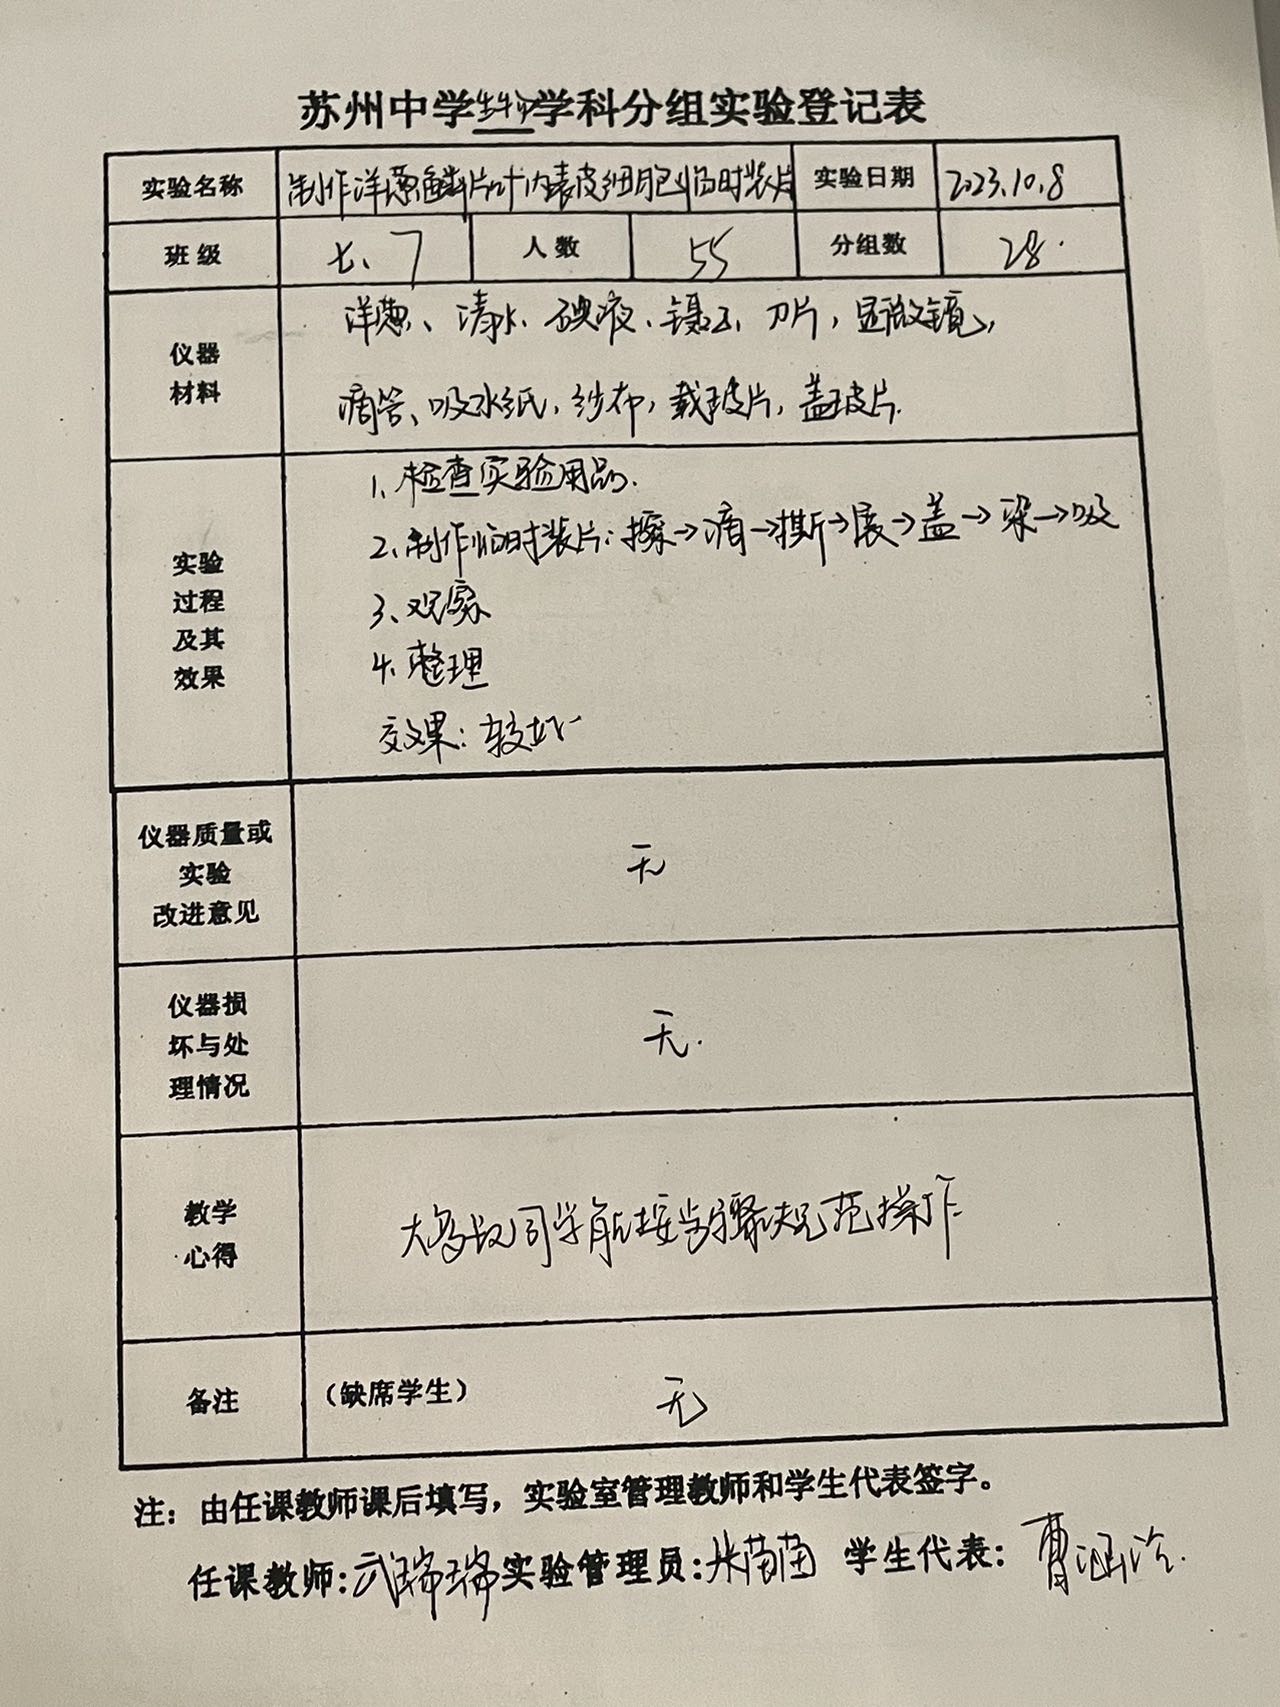 苏州中学生物学科分组实验登记表
实验名称 制作洋葱鳞片叶内表皮细胞临时装片 实验日期 2023.10.8
班级 七、7 人数 55 分组数 28.
仪器
材料
洋葱、清水、碘液、镊子、刀片，显微镜，
滴管、吸水纸，纱布，载玻片，盖玻片.
实验
过程
及其
效果
1、检查实验用品.
2、制作临时装片：擦→滴→撕→展→盖→染→吸
3、观察
4、整理
效果：较好
仪器质量或
实验
改进意见
无
仪器损
坏与处
理情况
无.
教学
心得
大多数同学能按步骤规范操作
备注 （缺席学生） 无
注：由任课教师课后填写，实验室管理教师和学生代表签字。
任课教师：武瑞瑞 实验管理员： 学生代表：曹涵